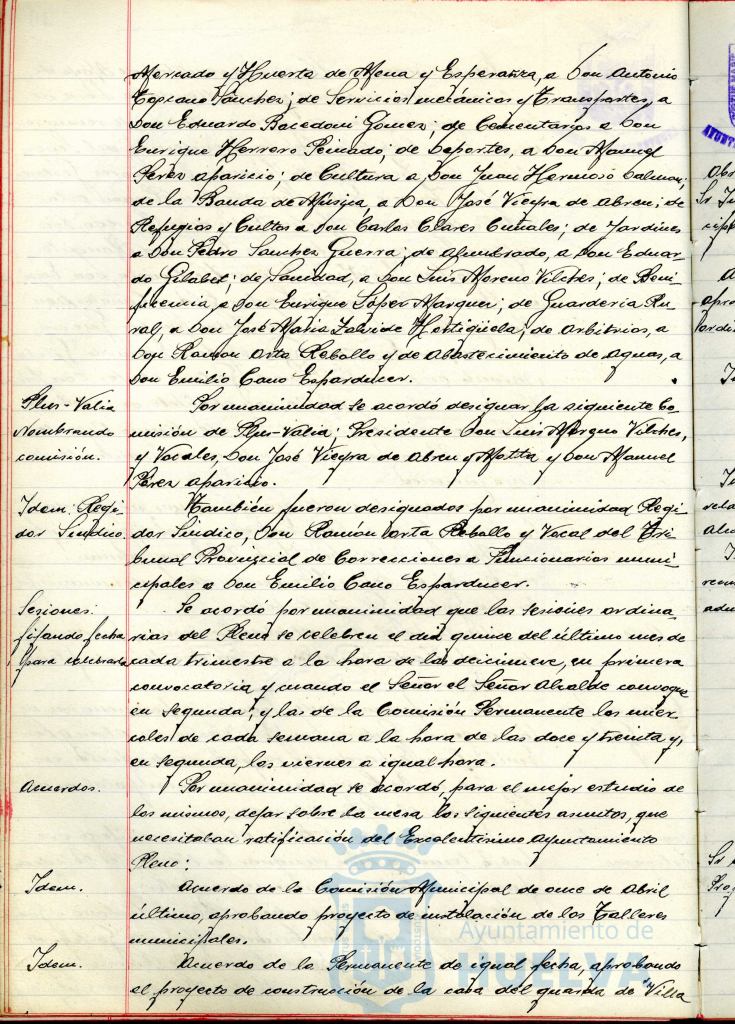 Mercado y Huerta de Mena y Esperanza, a Don Antonio
Toscano Sánchez; de Servicios mecánicos y Transportes, a
Don Eduardo Bocedoni Gomez; de Cementarios a Don
Enrique Herrero Peinado; de Deportes, a Don Manuel
Perez Aparicio; de Cultura a Don Juan Hermoso
de la Banda de Música, a Don José Vieyra de Abreu; de
Refugios y Cultos a Don Carlos Clares Cuñales; de Jardines
a Don Pedro Sanchez Guerra; de Alumbrado, a Don Eduar-
do Gilabet; de Sanidad, a Don Luis Moreno Vilches; de Beni-
ficencia, a Don Enrique López Marquez; de Guarderia Ru-
ral, a Don José Maria Zalvide Hortigüela; de Arbitrios, a
Don Ramón Orta Rebollo y de Abastecimiento de Aguas, a
Don Emilio Cano Esparducer.
Plus-Valia
Nombrando
comisión.
Por unanimidad se acordó designar la siguiente Co-
misión de Plus-Valia; Presidente Don Luis Moreno Vilches,
y Vocales, Don José Vieyra de Abreu y Motta y Don Manuel
Perez Aparicio.
Idem: Regi-
dor Síndico.
También fueron designados por unanimidad Regi-
dor Síndico, Don Ramón Orta Rebollo y Vocal del Tri-
bunal Provincial de Correcciones a Funcionarios muni-
cipales a Don Emilio Cano Esparducer.
Sesiones:
fijando fecha
para celebrarla
Se acordó por unanimidad que las sesiones ordina-
rias del Pleno se celebren el dia quince del último mes de
cada trimestre a la hora de las diecinueve, en primera
convocatoria y cuando el Señor el Señor Alcalde convoque
en segunda; y las de la Comisión Permanente los miér-
coles de cada semana a la hora de las doce y treinta y,
en segunda, los viernes a igual hora.
Acuerdos.
Por unanimidad se acordó, para el mejor estudio de
los mismos, dejar sobre la mesa los siguientes asuntos, que
necesitaban ratificación del Excelentísimo Ayuntamiento
Pleno:
Idem.
Acuerdo de la Comisión Municipal de once de Abril
último, aprobando proyecto de instalación de los Talleres
municipales.
Idem.
Acuerdo de la Permanente de igual fecha, aprobando
el proyecto de construcción de la casa del guarda de "Villa
Ayuntamiento de
HUELVA